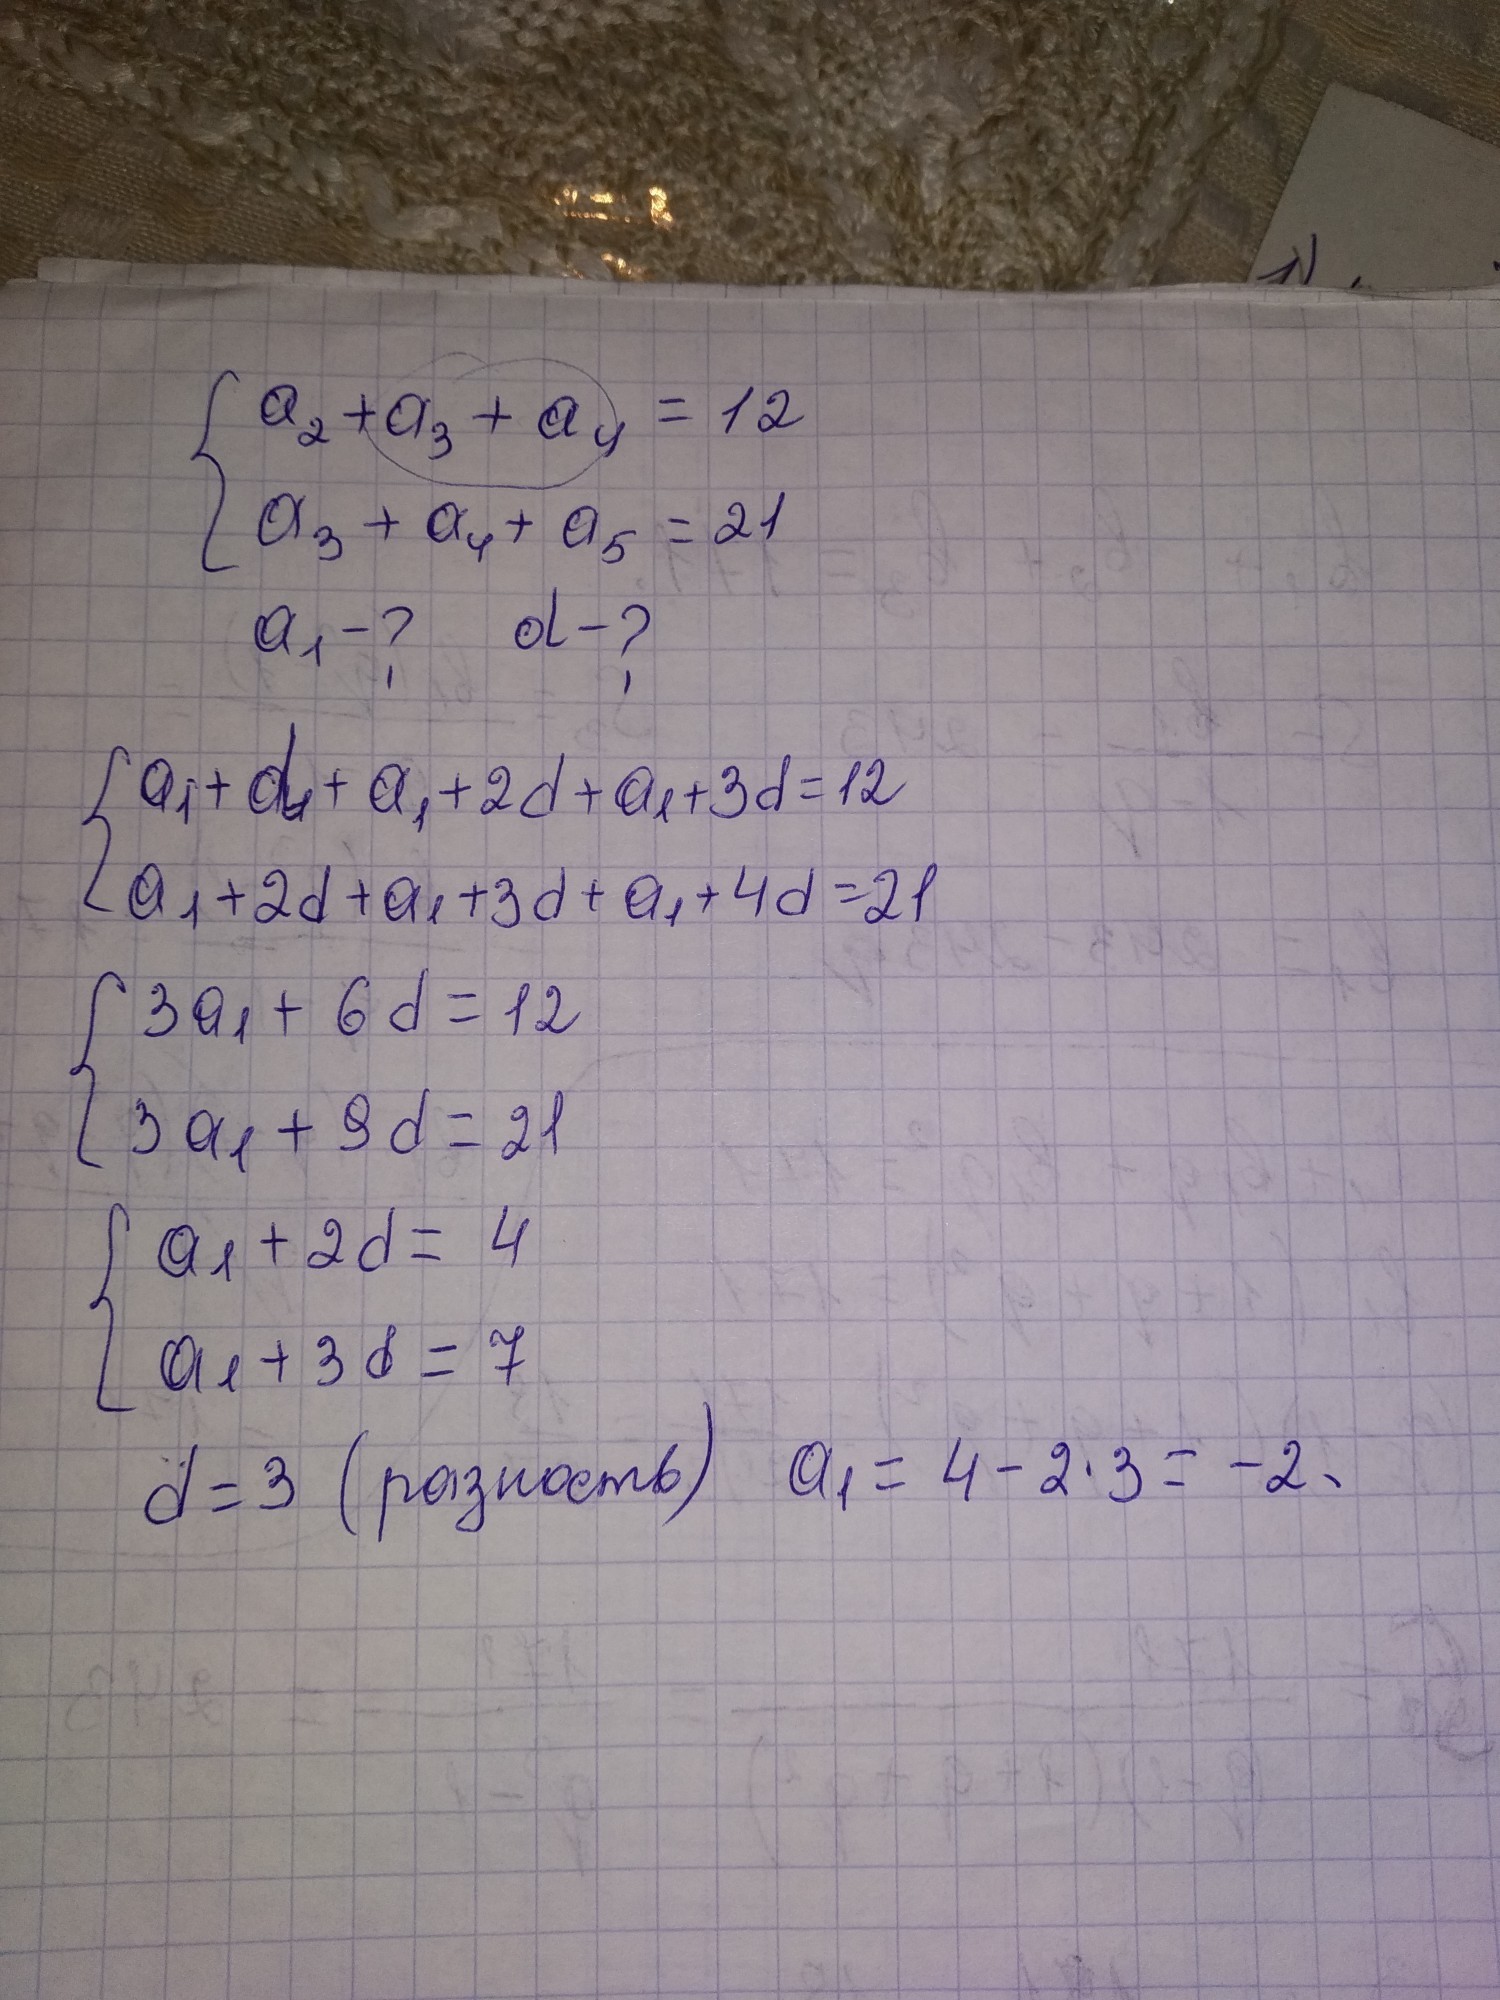 a₂ + a₃ + a₄ = 12
a₃ + a₄ + a₅ = 21
a₁ - ? d - ?
a₁ + d + a₁ + 2d + a₁ + 3d = 12
a₁ + 2d + a₁ + 3d + a₁ + 4d = 21
3a₁ + 6d = 12
3a₁ + 9d = 21
a₁ + 2d = 4
a₁ + 3d = 7
d = 3 (разность) a₁ = 4 - 2·3 = -2.